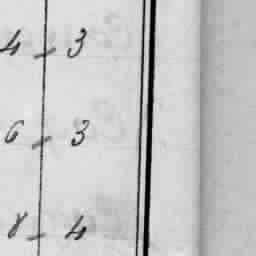 4 - 3
6 - 3
8 - 4